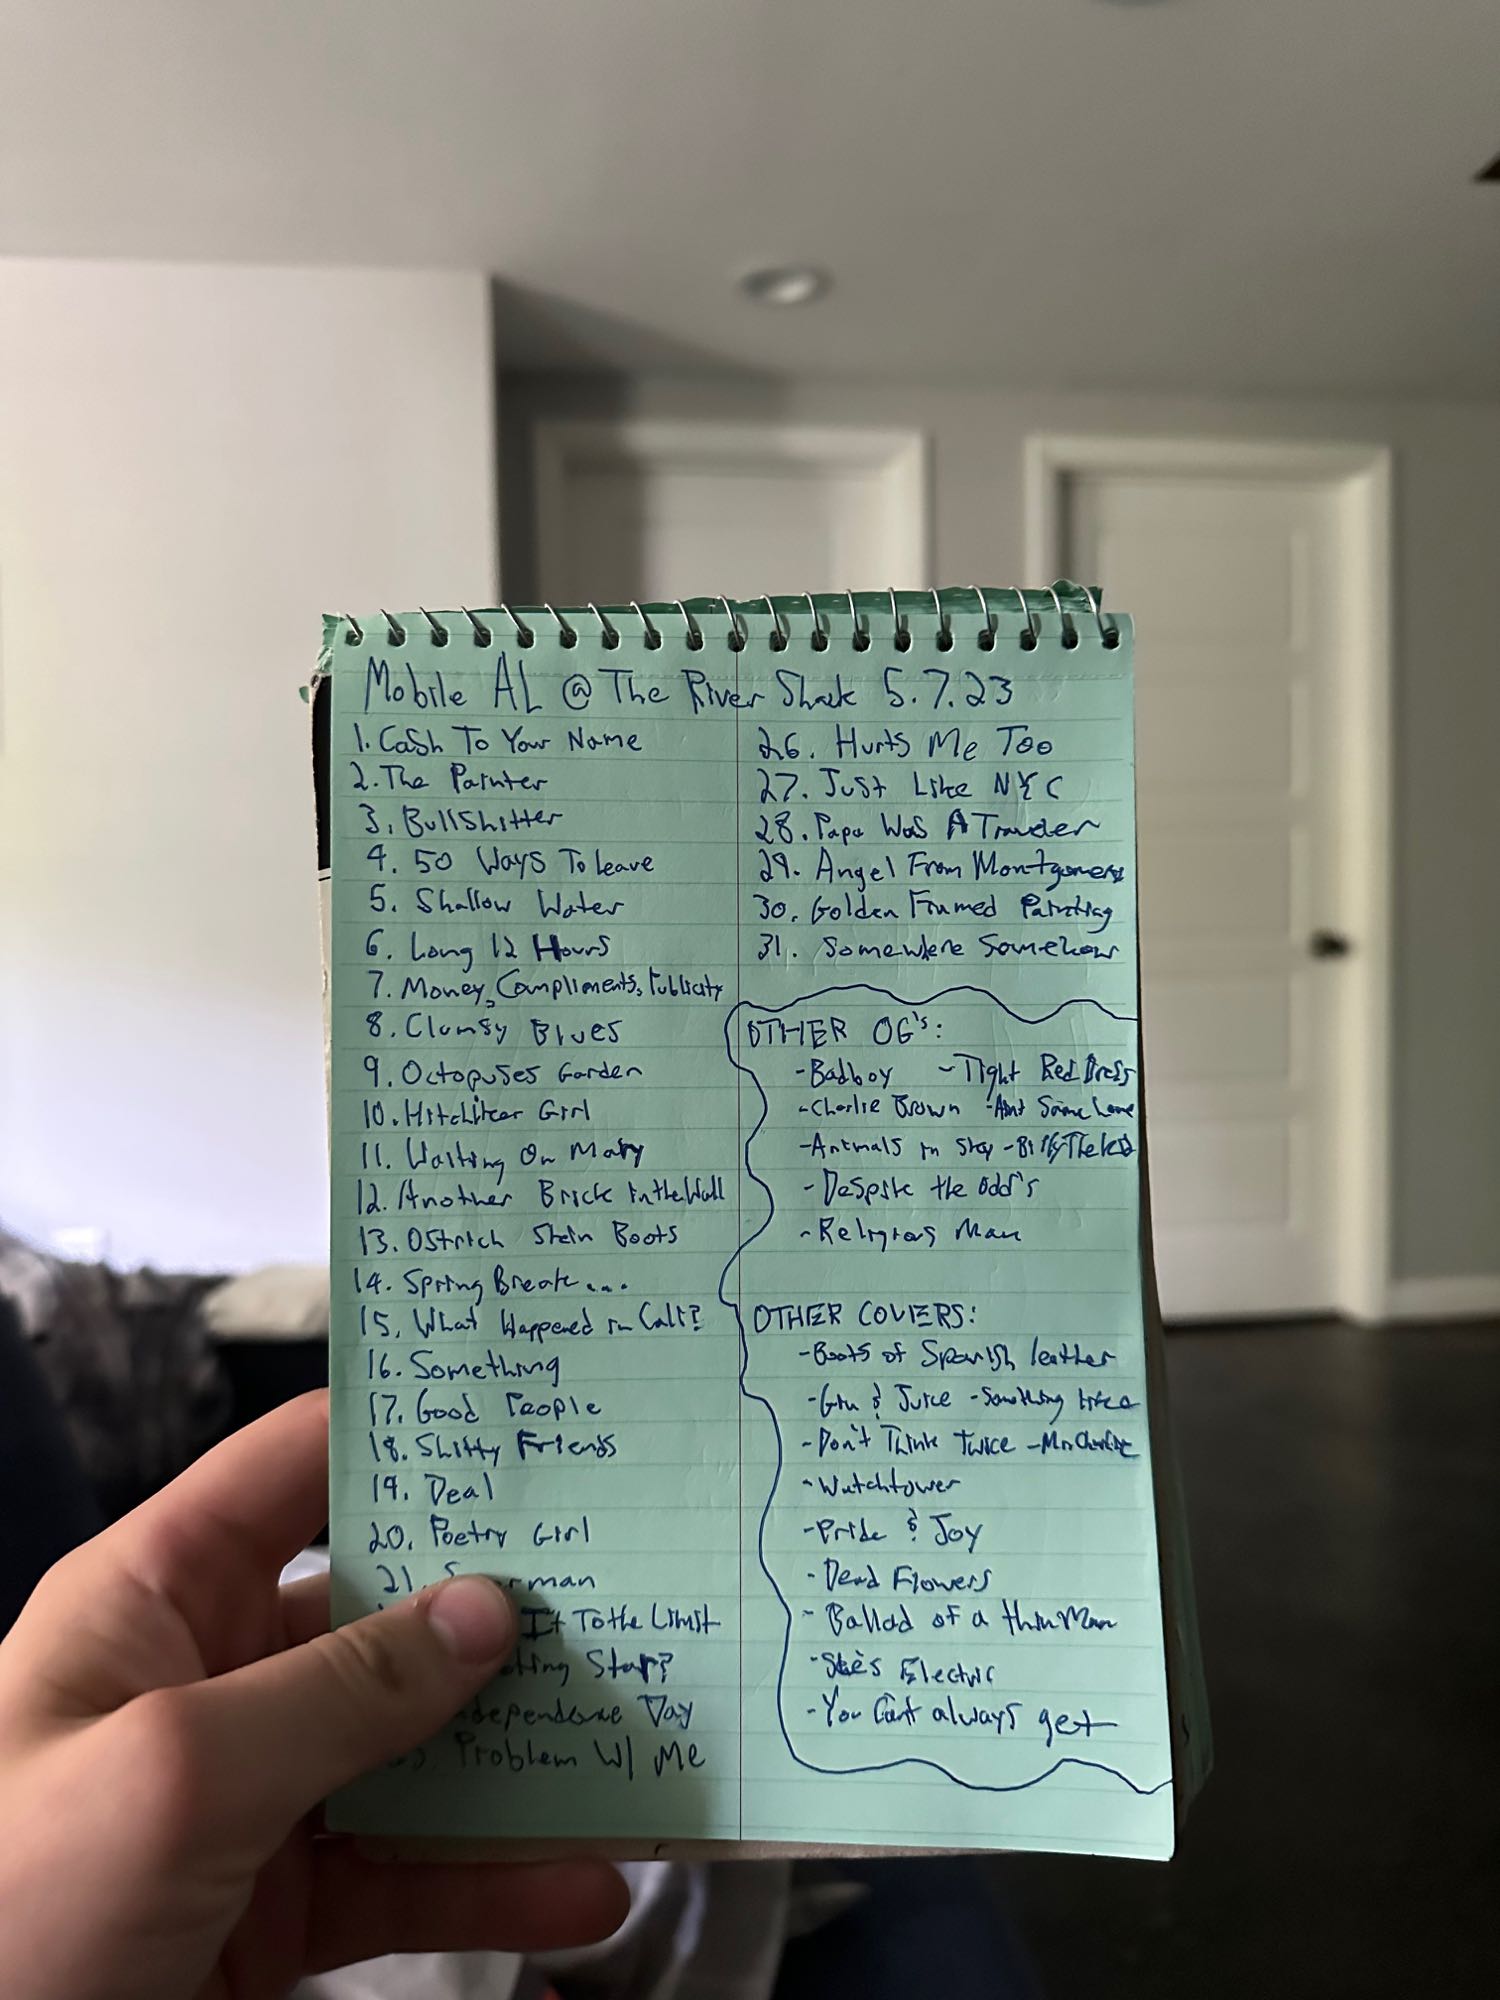 Mobile AL @ The River Shack 5.7.23
1. Cash To Your Name
2. The Painter
3. Bullshitter
4. 50 Ways To Leave
5. Shallow Water
6. Long 12 Hours
7. Money, Compliments, Publicity
8. Clumsy Blues
9. Octopuses Garden
10. Hitchiker Girl
11. Waiting On Mary
12. Another Brick in the Wall
13. Ostrich Skin Boots
14. Spring Break...
15. What Happened in Cali?
16. Something
17. Good People
18. Shitty Friends
19. Deal
20. Poetry Girl
21. man
It To the Limit
Star?
Day
Problem W/ Me
26. Hurts Me Too
27. Just Like NYC
28. Papa Was A Traveler
29. Angel From Montgomery
30. Golden Framed Painting
31. Somewhere Somehow
OTHER OG's:
-Badboy -Tight Red Dress
-Charlie Brown -Aint Same Love
-Animals in -Billy The Kid
-Despite the Odd's
-Religious Man
OTHER COVERS:
-Boots of Spanish leather
-Gin & Juice -Something like a
-Don't Think Twice -Mr. Charlie
-Watchtower
-Pride & Joy
-Dead Flowers
-Ballad of a thin Man
-She's Electric
-You Can't always get